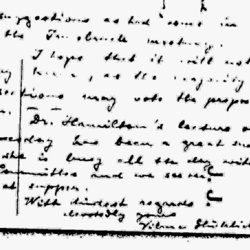 suggestions as had come in
the Innsbruck meeting.
I hope that it will not
, as the majority
sections may vote the propo
Dr. Hamilton's lecture o
esday has been a great su
she is busy all the day with
Committee and we
at supper.
With kindest regards
cordially yours
Vilma